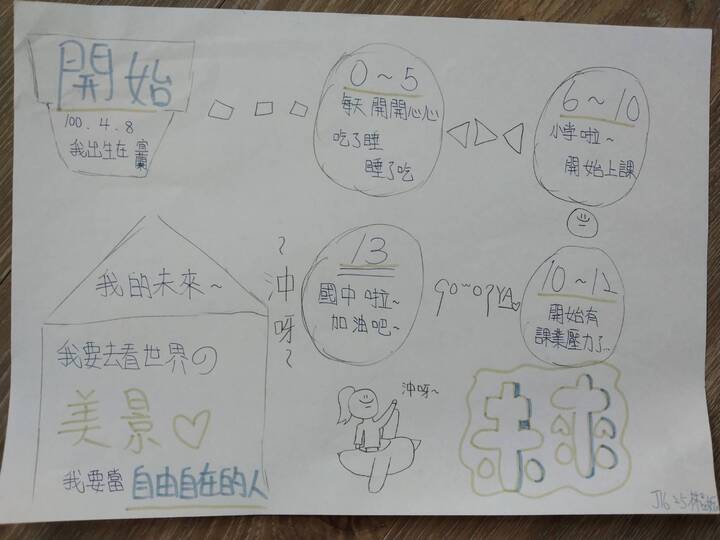 開始
100.4.8
我出生在宜蘭
0~5
每天開開心心
吃了睡
睡了吃
6~10
小学啦~
開始上課
10~12
開始有
課業壓力了...
go~go
13
國中啦~
加油吧~
~沖呀~
我的未來~
我要去看世界の
美景♡
我要當自由自在的人
沖呀~
未來